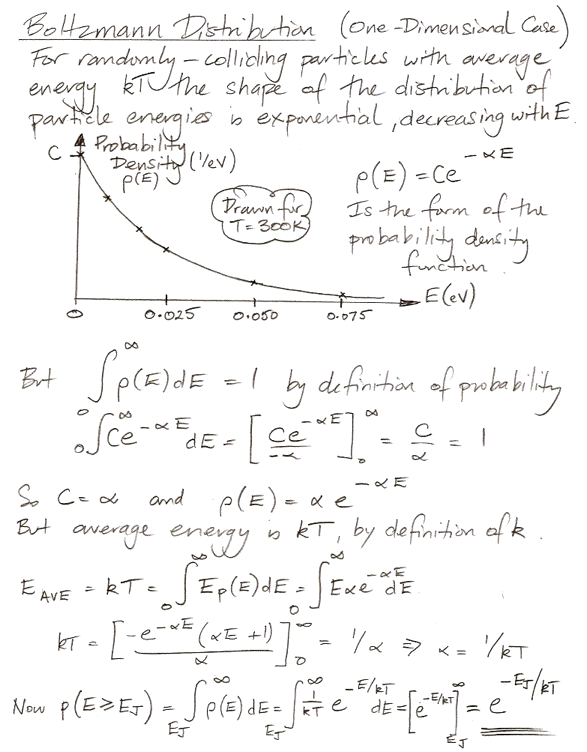 Boltzmann Distribution (One-Dimensional Case)
For randomly-colliding particles with average
energy kT the shape of the distribution of
particle energies is exponential, decreasing with E.
C
Probability
Density (1/eV)
ρ(E)
Drawn for
T=300K
ρ(E) = Ce^{-αE}
Is the form of the
probability density
function.
E(eV)
0 0.025 0.050 0.075
But ∫_0^∞ ρ(E)dE = 1 by definition of probability
∫_0^∞ Ce^{-αE} dE = [Ce^{-αE}/-α]_0^∞ = C/α = 1
So C=α and ρ(E) = αe^{-αE}
But average energy is kT, by definition of k.
E_AVE = kT = ∫_0^∞ Eρ(E)dE = ∫_0^∞ Eαe^{-αE}dE
kT = [-e^{-αE}(αE+1)/α]_0^∞ = 1/α ⇒ α = 1/kT
Now p(E≥E_J) = ∫_{E_J}^∞ ρ(E)dE = ∫_{E_J}^∞ 1/kT e^{-E/kT} dE = [e^{-E/kT}]_{E_J}^∞ = e^{-E_J/kT}